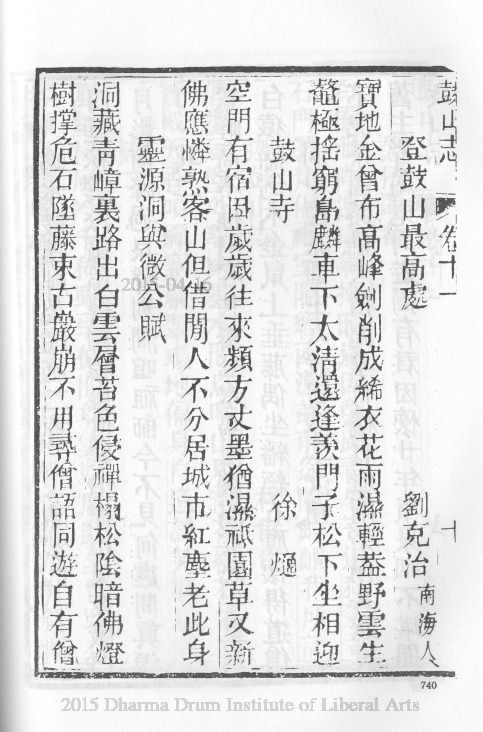 鼓山志 卷十一 十
登鼓山最高處 劉克治 南海人
寶地金曾布高峰劍削成絺衣花雨濕輕葢野雲生
鼇極搖窮島麟車下太清還逢羨門子松下坐相迎
鼓山寺 徐𤊹
空門有宿因歲歲往來頻方丈墨猶濕祇園草又新
佛應憐熟客山但借閒人不分居城市紅塵老此身
靈源洞與微公賦
洞藏靑嶂裏路出白雲層苔色侵禪榻松陰暗佛燈
樹撑危石墜藤束古巖崩不用尋僧話同遊自有僧
740
2015 Dharma Drum Institute of Liberal Arts